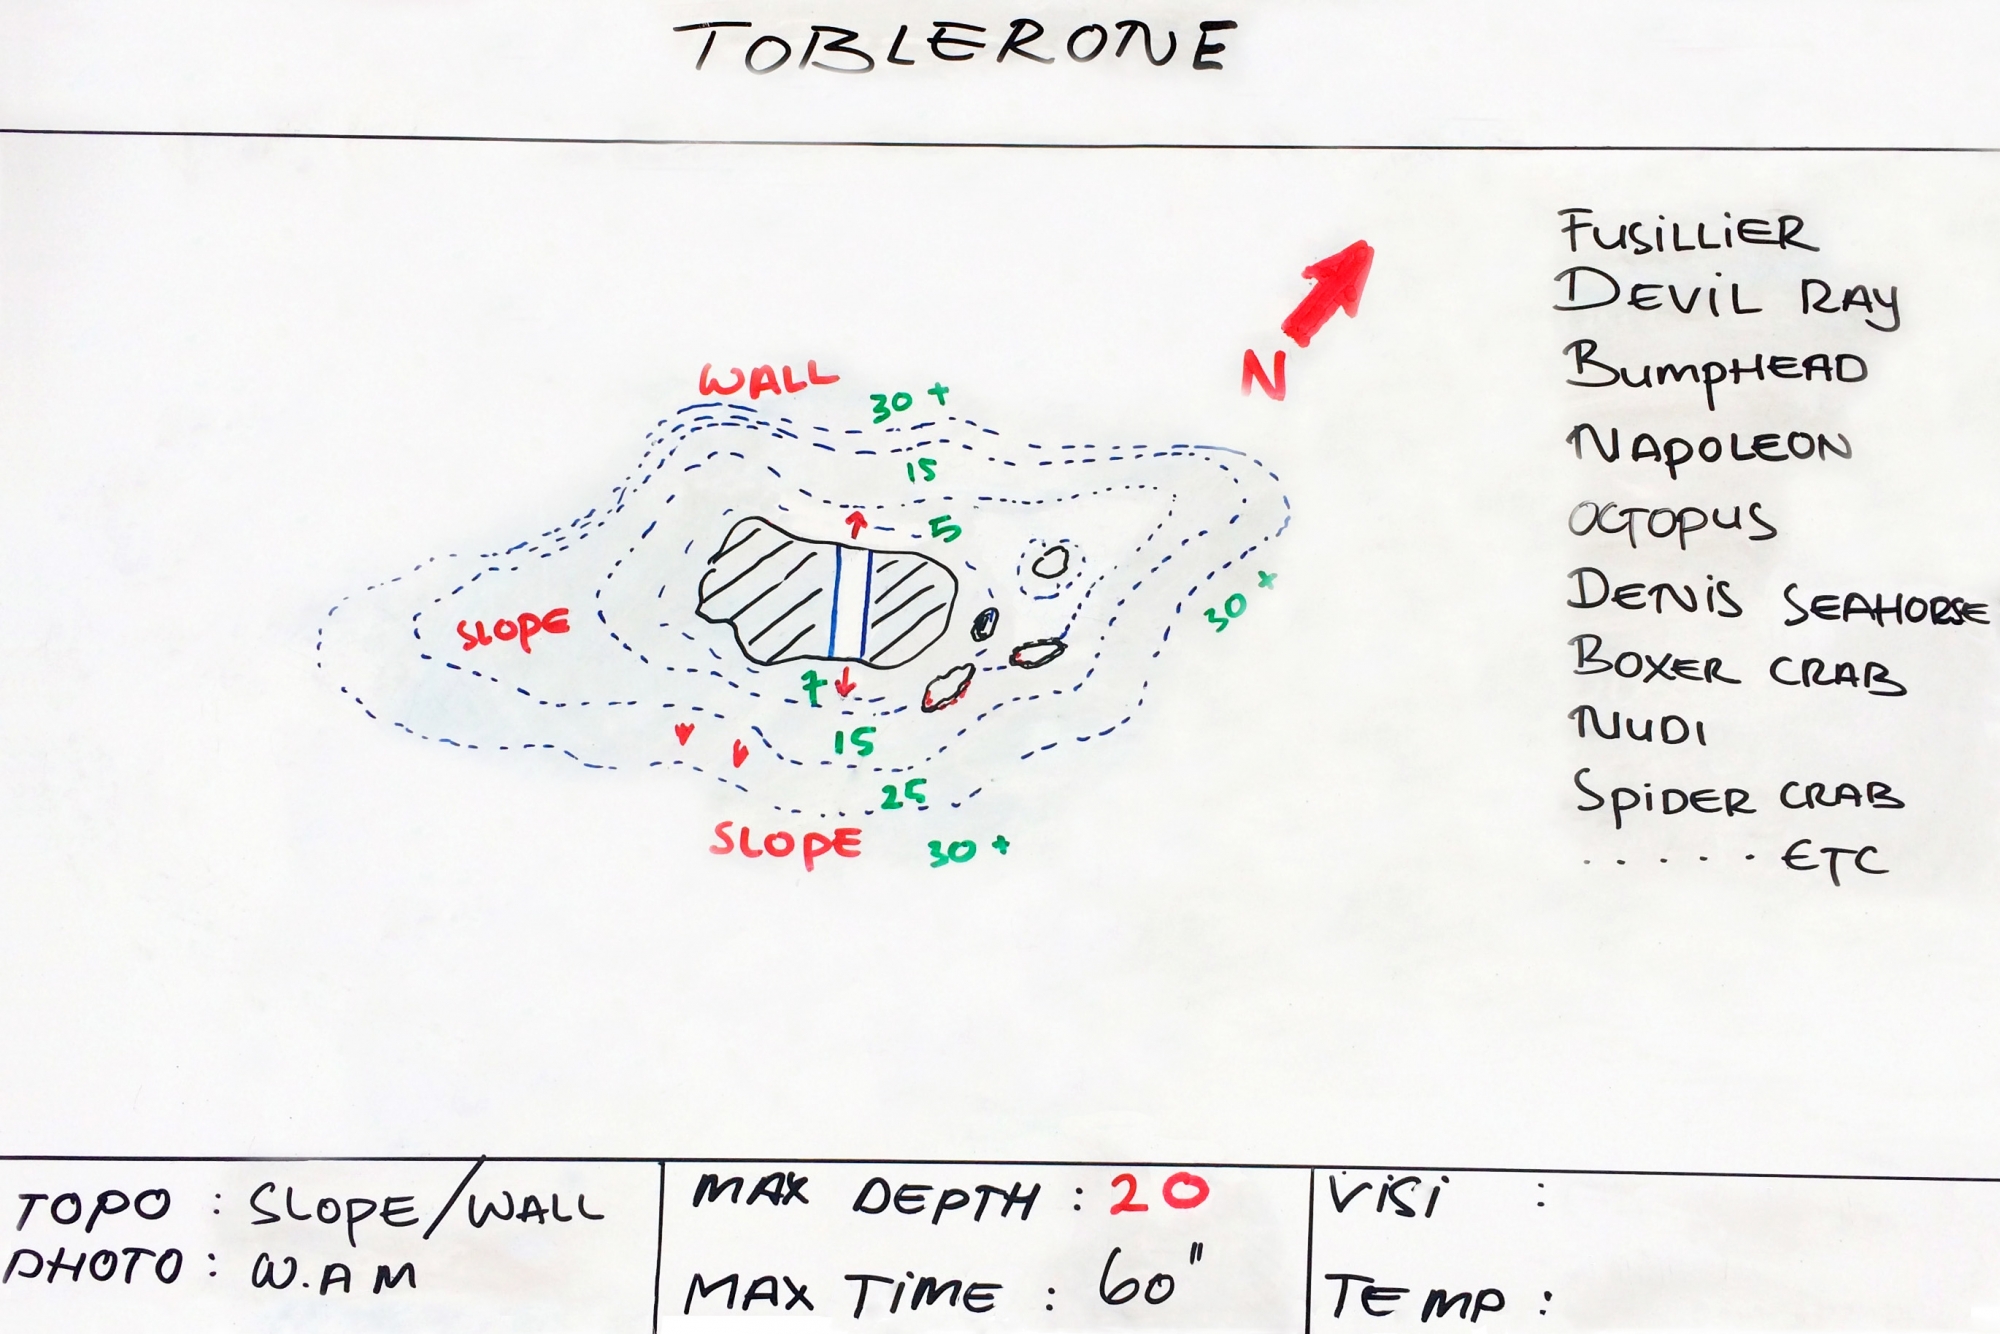 TOBLERONE
FUSILLIER
DEVIL RAY
BUMPHEAD
NAPOLEON
OCTOPUS
DENIS SEAHORSE
BOXER CRAB
NUDI
SPIDER CRAB
. . . . . ETC
N
WALL
30 +
15
5
SLOPE
30 +
7
15
25
SLOPE
30 +
TOPO : SLOPE/WALL
PHOTO : W.A M
MAX DEPTH : 20
MAX TIME : 60"
VISI :
TEMP :